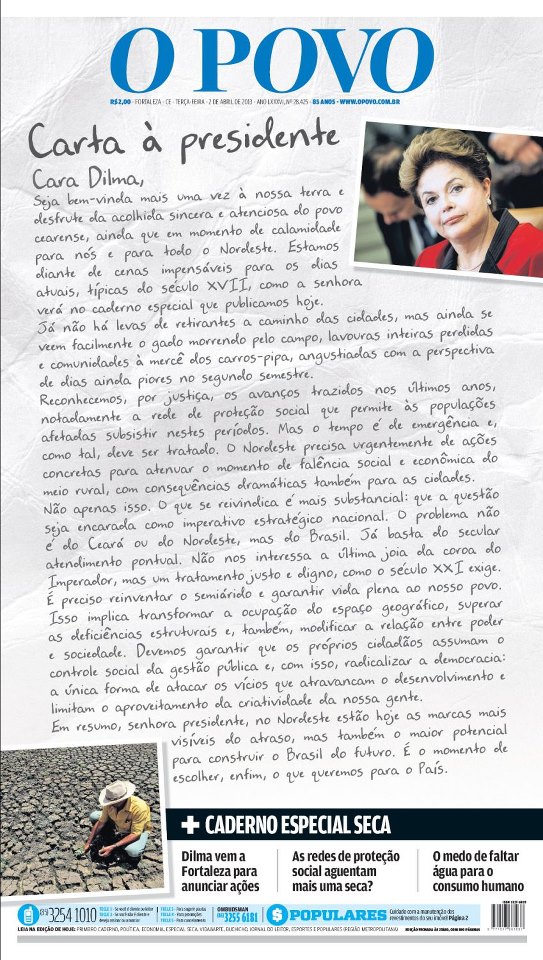 O POVO
R$2,00 - FORTALEZA - CE - TERÇA-FEIRA - 2 DE ABRIL DE 2013 - ANO LXXXVI, Nº 28.425 - 85 ANOS - WWW.OPOVO.COM.BR
Carta à presidente
Cara Dilma,
Seja bem-vinda mais uma vez à nossa terra e
desfrute da acolhida sincera e atenciosa do povo
cearense, ainda que em momento de calamidade
para nós e para todo o Nordeste. Estamos
diante de cenas impensáveis para os dias
atuais, típicas do século XVII, como a senhora
verá no caderno especial que publicamos hoje.
Já não há levas de retirantes a caminho das cidades, mas ainda se
veem facilmente o gado morrendo pelo campo, lavouras inteiras perdidas
e comunidades à mercê dos carros-pipa, angustiadas com a perspectiva
de dias ainda piores no segundo semestre.
Reconhecemos, por justiça, os avanços trazidos nos últimos anos,
notadamente a rede de proteção social que permite às populações
afetadas subsistir nestes períodos. Mas o tempo é de emergência e,
como tal, deve ser tratado. O Nordeste precisa urgentemente de ações
concretas para atenuar o momento de falência social e econômica do
meio rural, com consequências dramáticas também para as cidades.
Não apenas isso. O que se reivindica é mais substancial: que a questão
seja encarada como imperativo estratégico nacional. O problema não
é do Ceará ou do Nordeste, mas do Brasil. Já basta do secular
atendimento pontual. Não nos interessa a última joia da coroa do
Imperador, mas um tratamento justo e digno, como o século XXI exige.
É preciso reinventar o semiárido e garantir vida plena ao nosso povo.
Isso implica transformar a ocupação do espaço geográfico, superar
as deficiências estruturais e, também, modificar a relação entre poder
e sociedade. Devemos garantir que os próprios cidadãos assumam o
controle social da gestão pública e, com isso, radicalizar a democracia:
a única forma de atacar os vícios que atravancam o desenvolvimento e
limitam o aproveitamento da criatividade da nossa gente.
Em resumo, senhora presidente, no Nordeste estão hoje as marcas mais
visíveis do atraso, mas também o maior potencial
para construir o Brasil do futuro. É o momento de
escolher, enfim, o que queremos para o País.
+ CADERNO ESPECIAL SECA
Dilma vem a
Fortaleza para
anunciar ações
As redes de proteção
social aguentam
mais uma seca?
O medo de faltar
água para o
consumo humano
(85) 3254 1010
OMBUDSMAN
3255 6181
$ POPULARES
Cuidado com a manutenção dos
revestimentos do seu imóvel Página 2
LEIA NA EDIÇÃO DE HOJE: PRIMEIRO CADERNO, POLÍTICA, ECONOMIA, ESPECIAL SECA, VIDA&ARTE, BUCHICHO, JORNAL DO LEITOR, ESPORTES E POPULARES (REGIÃO METROPOLITANA)